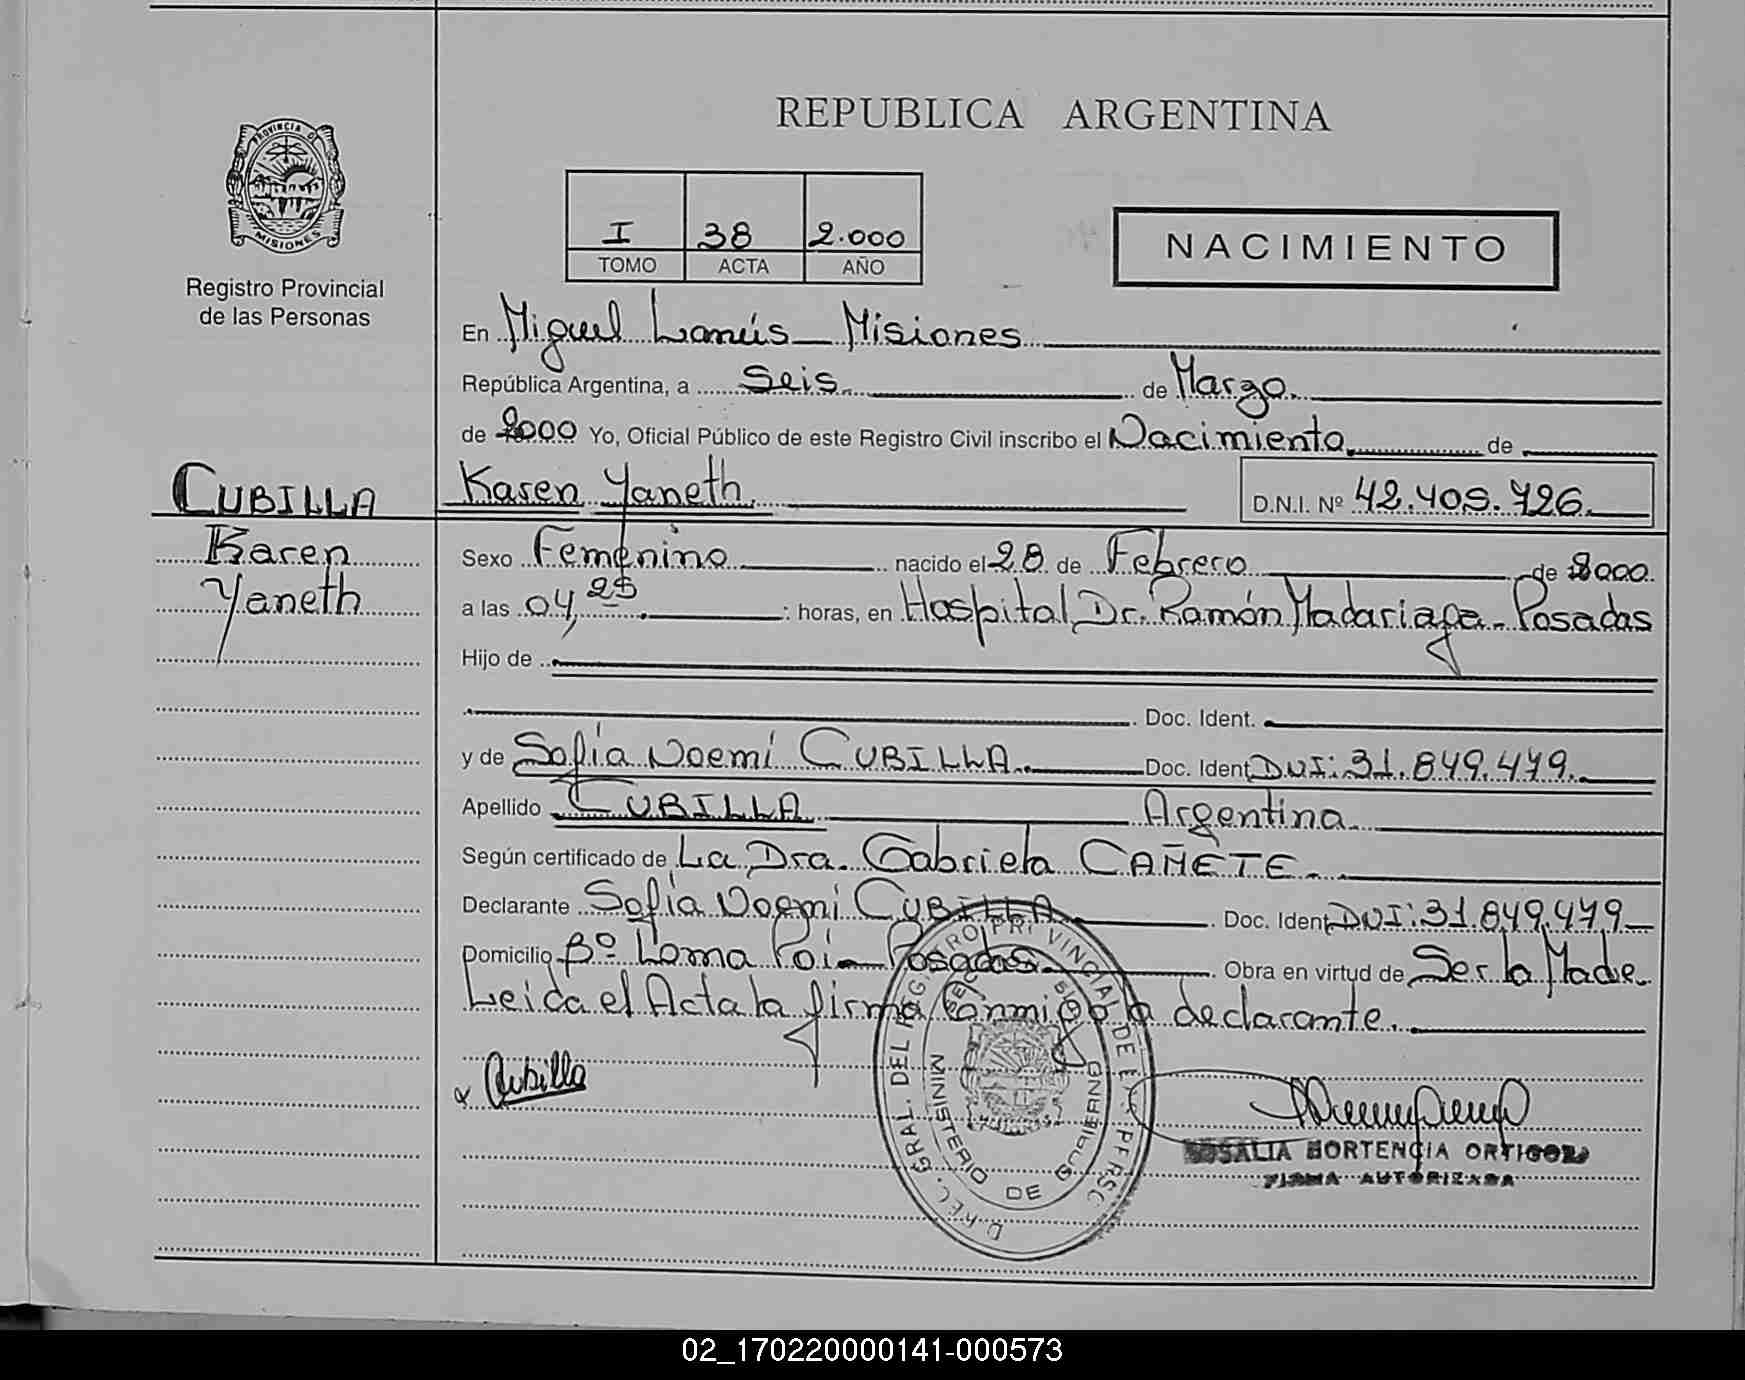 REPUBLICA ARGENTINA
PROVINCIA DE
MISIONES
Registro Provincial
de las Personas
I 38 2.000
TOMO ACTA AÑO
NACIMIENTO
En Miguel Lanús - Misiones
República Argentina, a Seis de Marzo
de 2000 Yo, Oficial Público de este Registro Civil inscribo el Nacimiento de
CUBILLA
Karen Yaneth
D.N.I. Nº 42.405.726.
Karen
Yaneth
Sexo Femenino nacido el 28 de Febrero de 2000
a las 04,25 : horas, en Hospital Dr. Ramón Madariaga - Posadas
Hijo de
Doc. Ident.
y de Sofía Noemí CUBILLA Doc. Ident. DNI: 31.849.479.
Apellido CUBILLA Argentina
Según certificado de La Dra. Gabriela CAÑETE.
Declarante Sofía Noemí CUBILLA Doc. Ident. DNI: 31.849.479
Domicilio Bº Loma Poi - Posadas Obra en virtud de Ser la Madre
Leida el Acta la firma Conmigo la declarante.
x Cubilla
GRAL. DEL REGISTRO PROVINCIAL DE
MINISTERIO DE GOBIERNO
ROSALIA HORTENCIA
FIRMA AUTORIZADA
02_170220000141-000573